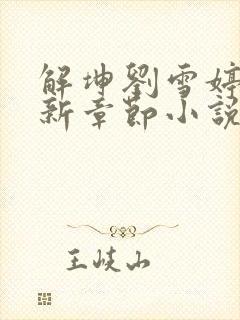 解坤劉雪婷
新章節小說
王峽山